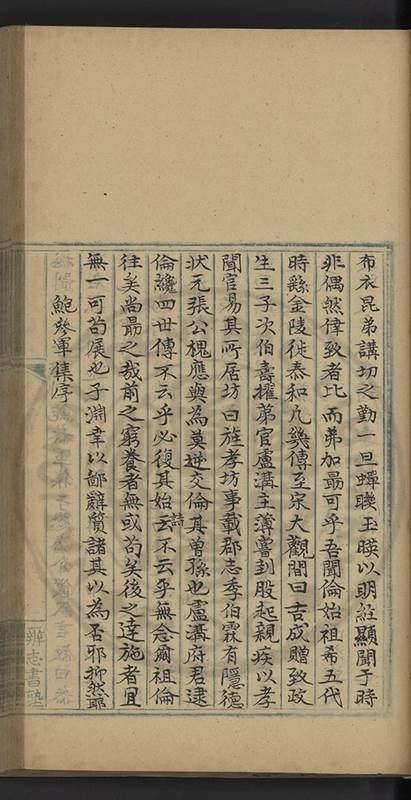 布衣昆弟講切之勤一旦蟬聮玉暎以明經顯聞于時
非偶然倖致者比而弗加勗可乎吾聞倫始祖希五代
時繇金陵徙泰和凡幾傳至宋大觀間曰吉成贈致政
生三子次伯壽擢弟官盧溝主溝嘗刲股起親疾以孝
聞官易其所居坊曰旌孝坊事載郡志季伯霖有隱德
狀元張公槐應與為莫逆交倫其曾孫也盧溝府君逮
倫纔四世傳不云乎必復其始詩不云乎無念爾祖倫
往矣尚勗之哉前之窮養者無或苟矣後之達施者宜
無一可苟展也子淵韋以鄙辭質諸其以為否邪抑然耶
鮑叅軍集序
辨志書塾